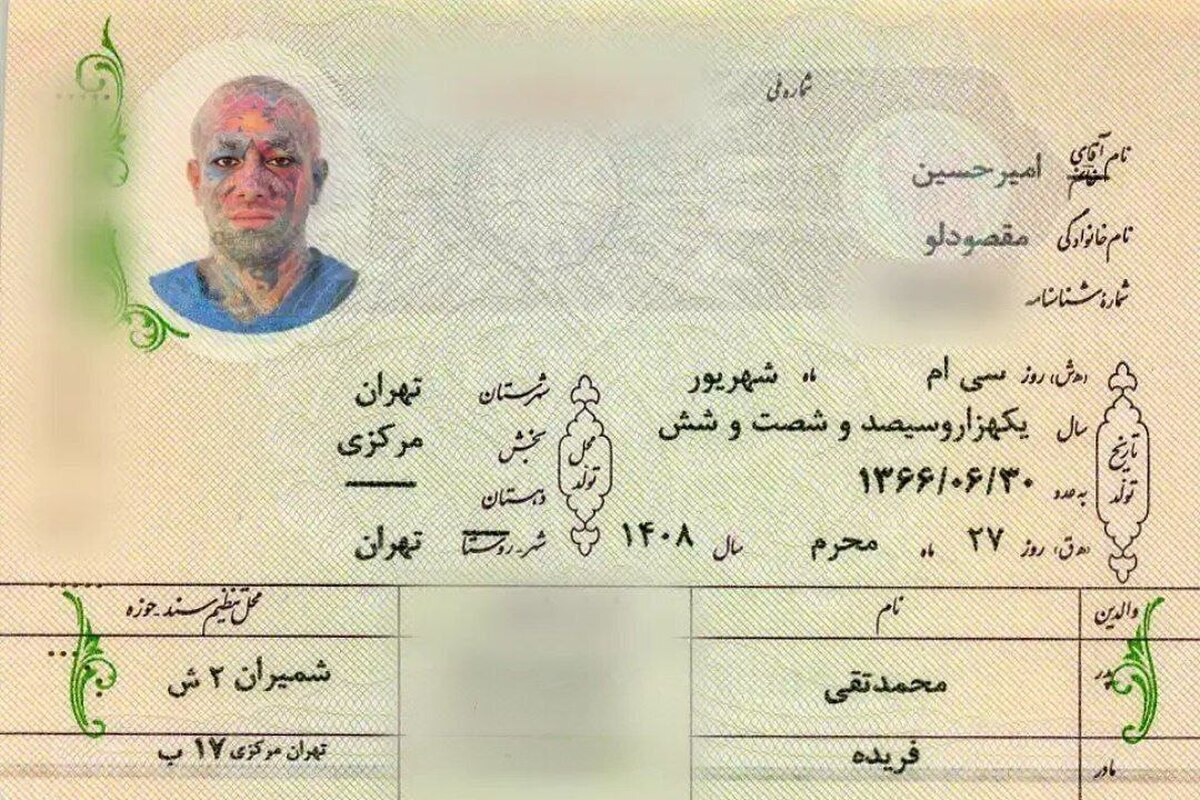 شماره ملی
نام آقای خانم امیرحسین
نام خانوادگی مقصودلو
شمارهٔ شناسنامه
تاریخ تولد
(ه‍.ش) روز سی ام ماه شهریور
سال یکهزاروسیصد و شصت و شش
به عدد ۱۳۶۶/۰۶/۳۰
(ه‍.ق) روز ۲۷ ماه محرم سال ۱۴۰۸
محل تولد
شهرستان تهران
بخش مرکزی
دهستان —
شهر-روستا تهران
والدین نام محل تنظیم سند-حوزه
پدر محمدتقی شمیران ۲ ش
مادر فریده تهران مرکزی ۱۷ ب